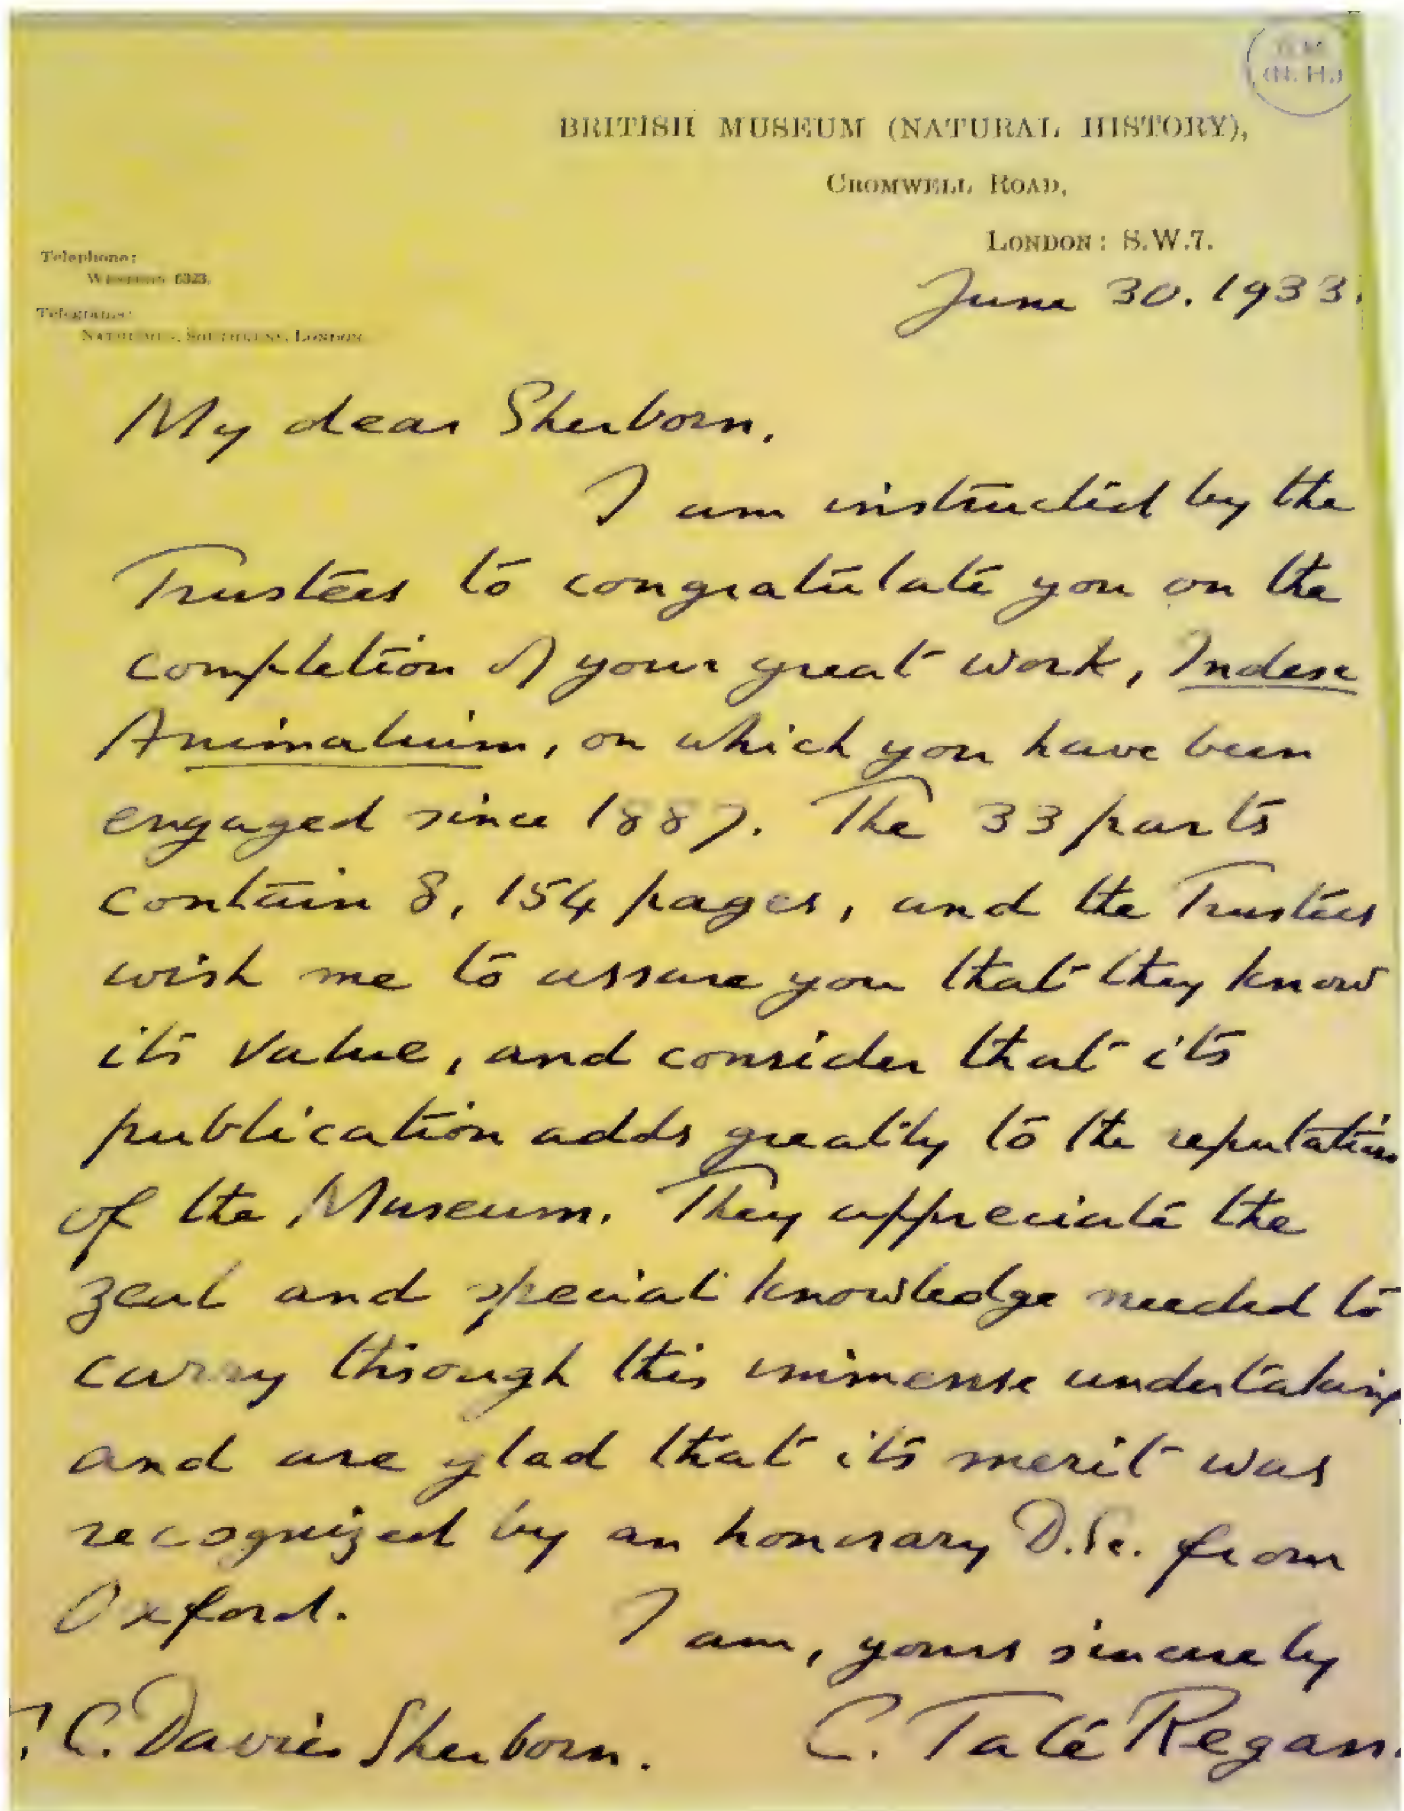 B.M.
(N.H.)
BRITISH MUSEUM (NATURAL HISTORY),
CROMWELL ROAD,
LONDON: S.W.7.
Telephone:
6323.
Telegrams:
LONDON
June 30. 1933.
My dear Sherborn,
I am instructed by the
Trustees to congratulate you on the
completion of your great work, Index
Animalium, on which you have been
engaged since 1887. The 33 parts
contain 8,154 pages, and the Trustees
wish me to assure you that they know
its value, and consider that its
publication adds greatly to the reputation
of the Museum. They appreciate the
zeal and special knowledge needed to
carry through this immense undertaking
and are glad that its merit was
recognized by an honorary D.Sc. from
Oxford.
I am, yours sincerely
C. Davies Sherborn.
C. Tate Regan.